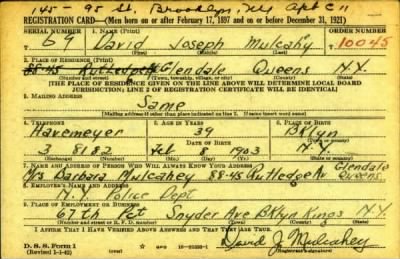 145 - 95 St. Brooklyn, NY Apt C11
REGISTRATION CARD—(Men born on or after February 17, 1897 and on or before December 31, 1921)
SERIAL NUMBER 1. NAME (Print) ORDER NUMBER
69 David Joseph Mulcahy 10045
(First) (Middle) (Last)
2. PLACE OF RESIDENCE (Print)
88-45 Rutledge Av Glendale Queens N.Y.
(Number and street) (Town, township, village, or city) (County) (State)
[THE PLACE OF RESIDENCE GIVEN ON THE LINE ABOVE WILL DETERMINE LOCAL BOARD
JURISDICTION; LINE 2 OF REGISTRATION CERTIFICATE WILL BE IDENTICAL]
3. MAILING ADDRESS
Same
[Mailing address if other than place indicated on line 2. If same insert word same]
4. TELEPHONE 5. AGE IN YEARS 6. PLACE OF BIRTH
Havemeyer 39 Bklyn
DATE OF BIRTH (Town or county)
3 8182 Feb 8 1903 N.Y.
(Exchange) (Number) (Mo.) (Day) (Yr.) (State or country)
7. NAME AND ADDRESS OF PERSON WHO WILL ALWAYS KNOW YOUR ADDRESS
Mrs Barbara Mulcahey 88-45 Rutledge Av Glendale Queens
8. EMPLOYER'S NAME AND ADDRESS
N.Y. Police Dept
9. PLACE OF EMPLOYMENT OR BUSINESS
67th Pct Snyder Ave Bklyn Kings N.Y.
(Number and street or R. F. D. number) (Town) (County) (State)
I AFFIRM THAT I HAVE VERIFIED ABOVE ANSWERS AND THAT THEY ARE TRUE.
D. S. S. Form 1 David J. Mulcahey
(Revised 1-1-42) (Registrant's signature)